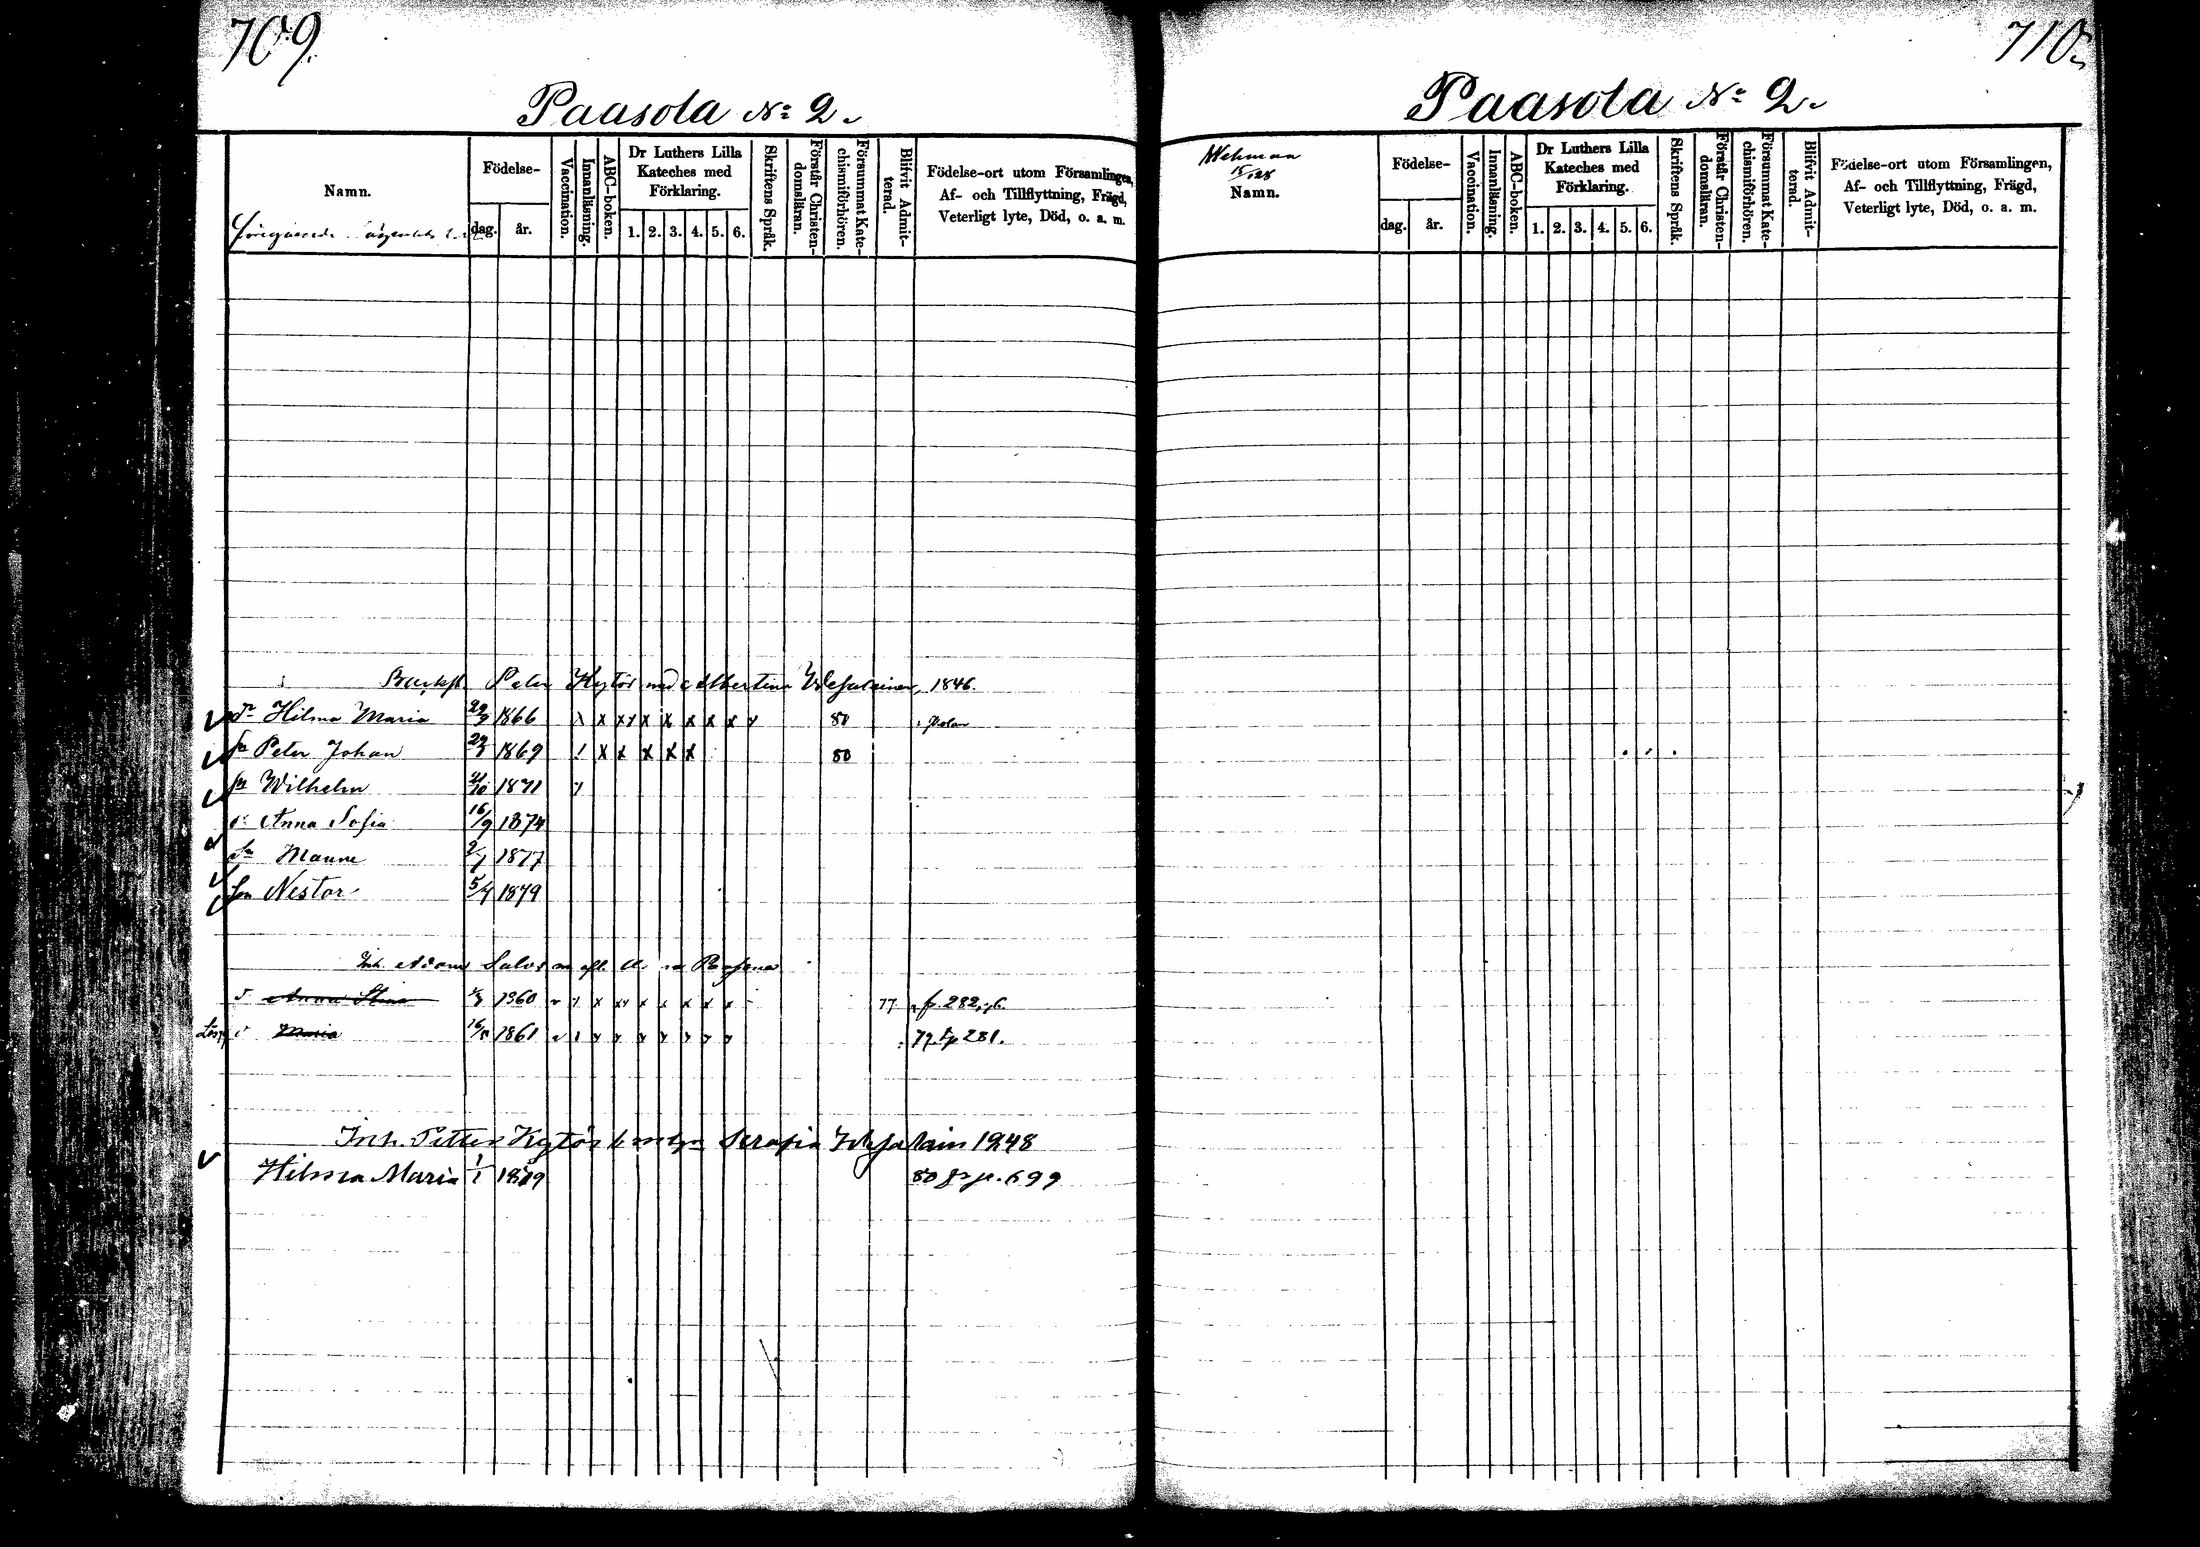 709.
Paasola No 2.
Namn.
Födelse-
dag.
år.
Vaccination.
Innanläsning.
ABC-boken.
Dr Luthers Lilla Kateches med Förklaring.
1. 2. 3. 4. 5. 6.
Skriftens Språk.
Förstår Christen-domsläran.
Försummat Kate-chismiförhören.
Blifvit Admit-terad.
Födelse-ort utom Församlingen, Af- och Tillflyttning, Frägd, Veterligt lyte, Död, o. a. m.
Peter Kytös med Albertina 1846.
Hilma Maria 1866 x x x x x x x x 80
Peter Johan 1869 x x x x x 80
Wilhelm 1871
Anna Sofia 16/9 1874
Manne 1877
Nestor 5/4 1879
Inh. Adam
Anna Stina 1860 77 p. 282
Maria 1861 77 p 281.
Inh. Petter Kytös Serafia 1848
Hilma Maria 1/1 1879 80 fr p. 699
710.
Paasola No 2.
Namn.
Födelse-
dag.
år.
Vaccination.
Innanläsning.
ABC-boken.
Dr Luthers Lilla Kateches med Förklaring.
1. 2. 3. 4. 5. 6.
Skriftens Språk.
Förstår Christen-domsläran.
Försummat Kate-chismiförhören.
Blifvit Admit-terad.
Födelse-ort utom Församlingen, Af- och Tillflyttning, Frägd, Veterligt lyte, Död, o. a. m.